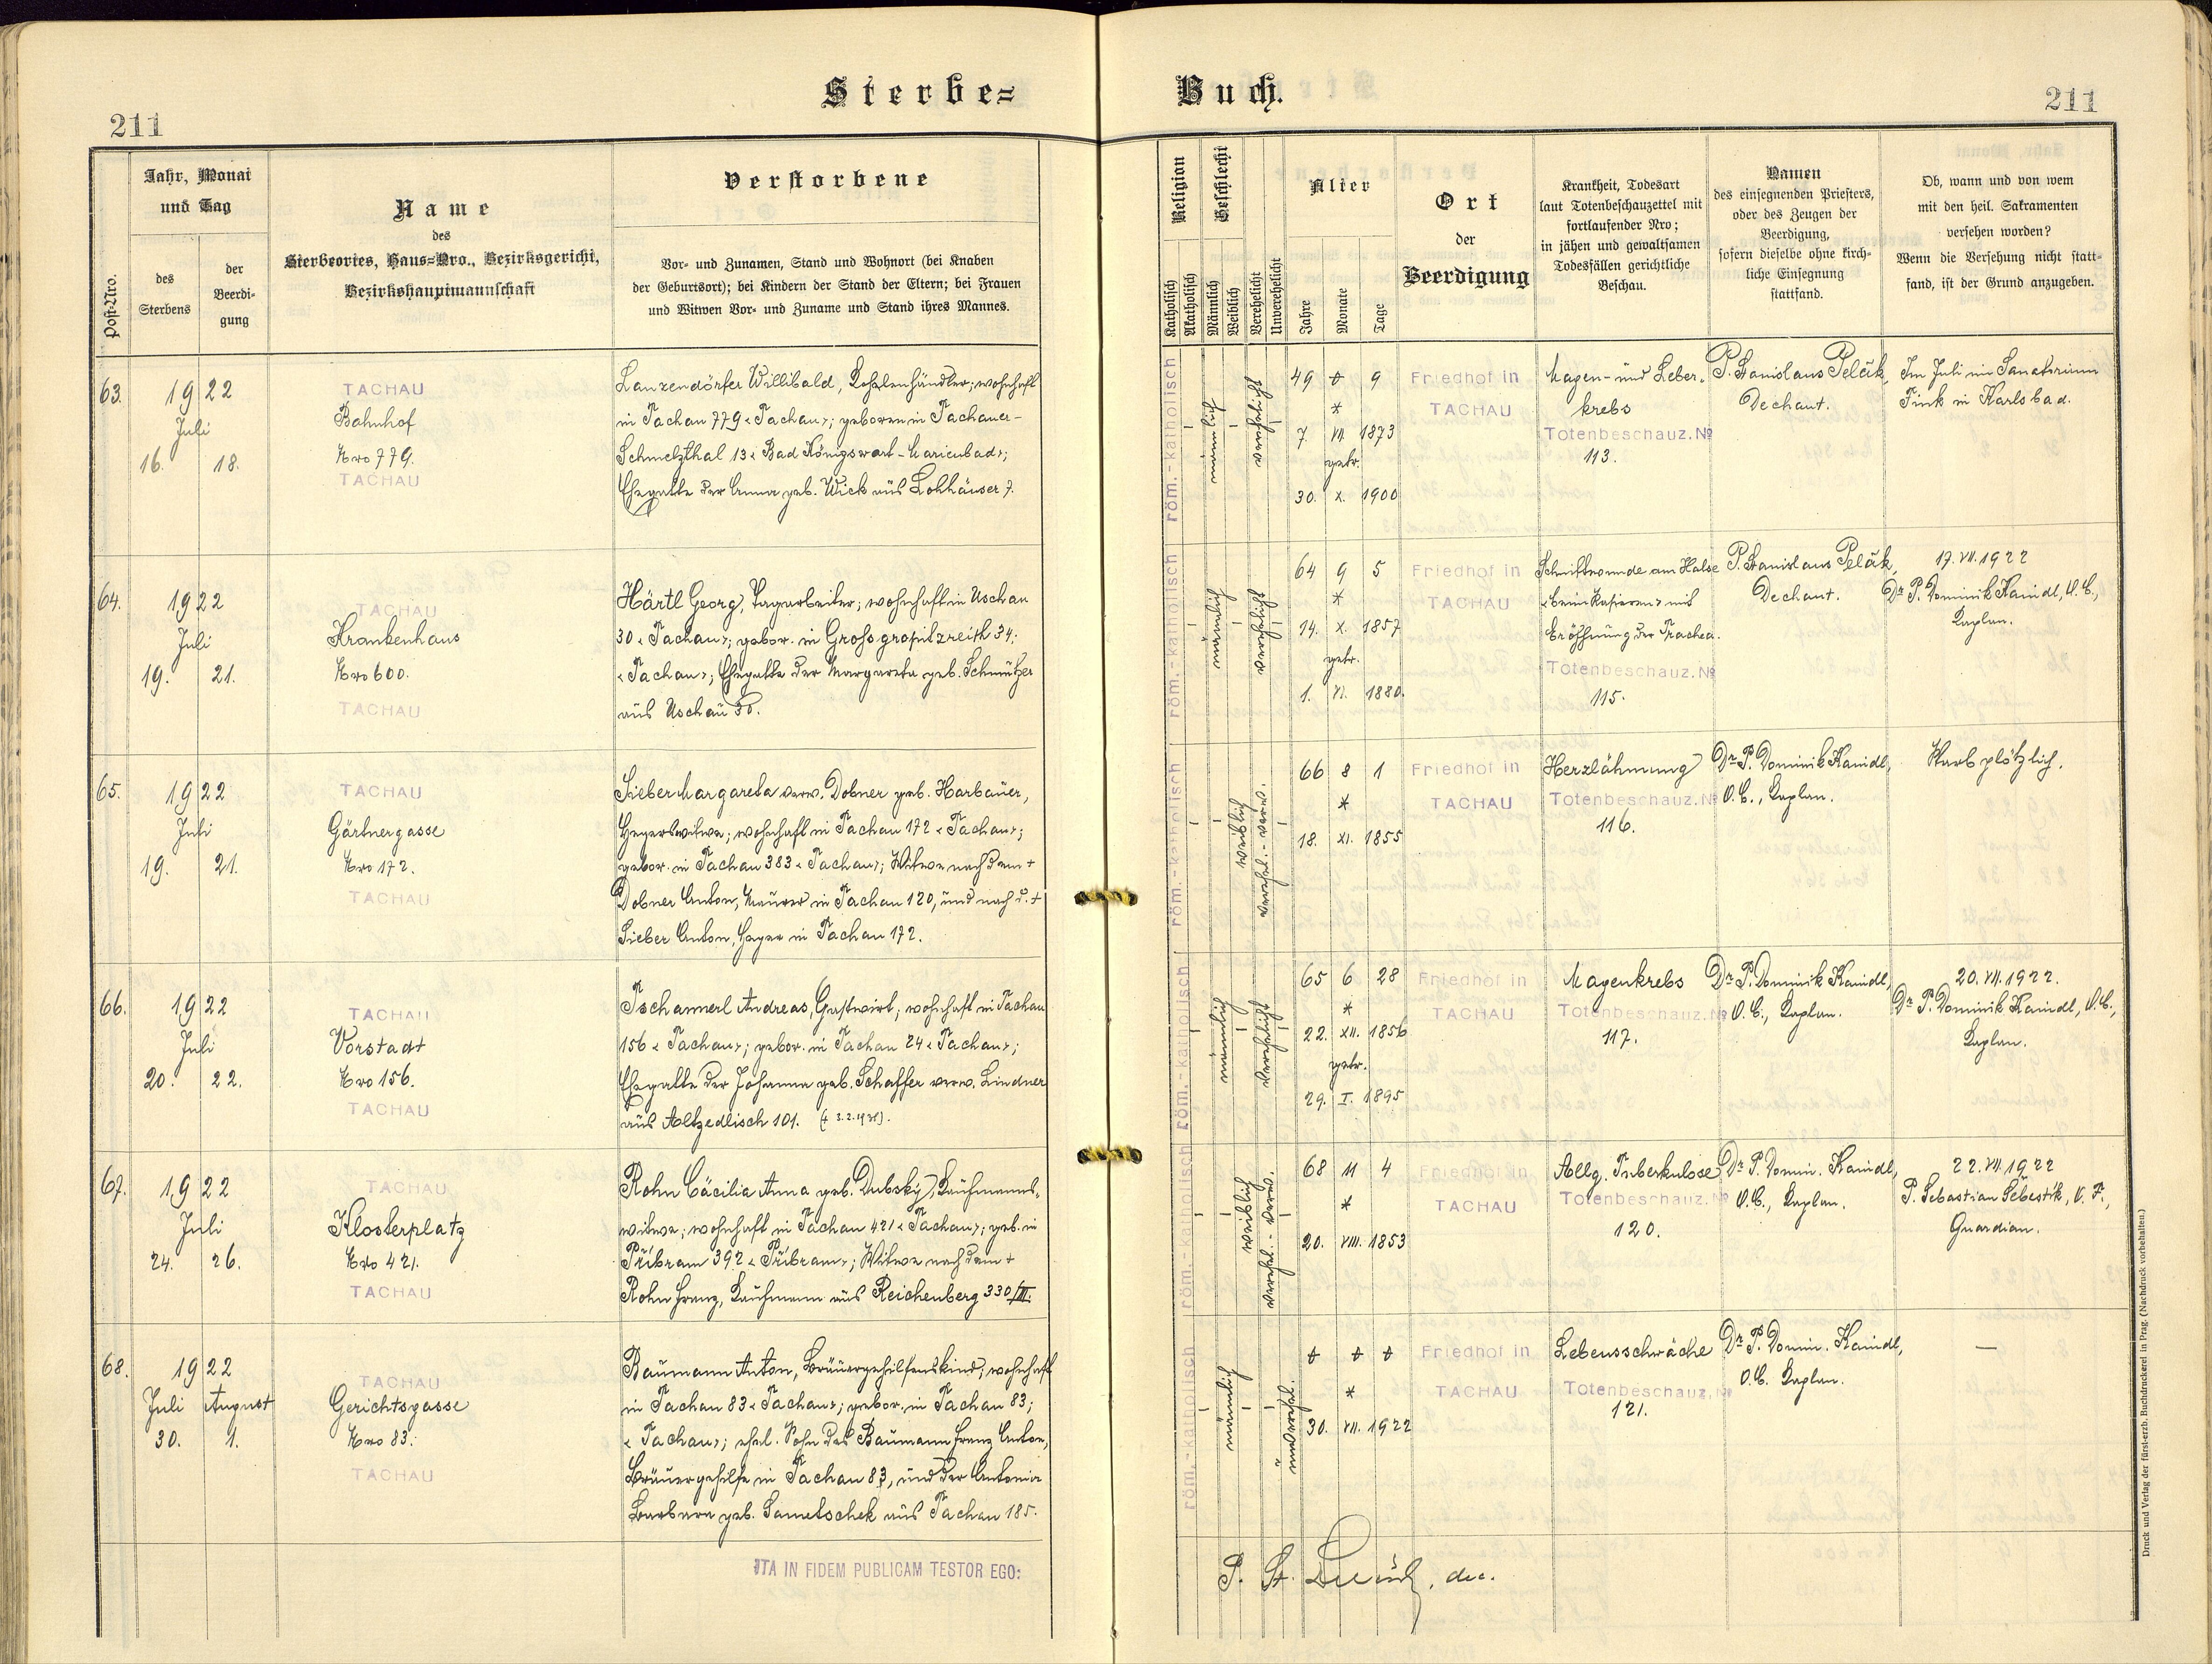 Sterbe=
Buch.
211
211
Post-Nro.
Jahr, Monat
und Tag
des
Sterbens
der
Beerdi-
gung
Name
des
Sterbeortes, Haus=Nro., Bezirksgericht,
Bezirkshauptmannschaft
Verstorbene
Vor- und Zunamen, Stand und Wohnort (bei Knaben
der Geburtsort); bei Kindern der Stand der Eltern; bei Frauen
und Witwen Vor- und Zuname und Stand ihres Mannes.
Religion
Katholisch
Akatholisch
Geschlecht
Männlich
Weiblich
Verehelicht
Unverehelicht
Alter
Jahre
Monate
Tage
Ort
der
Beerdigung
Krankheit, Todesart
laut Totenbeschauzettel mit
fortlaufender Nro;
in jähen und gewaltsamen
Todesfällen gerichtliche
Beschau.
Namen
des einsegnenden Priesters,
oder des Zeugen der
Beerdigung,
sofern dieselbe ohne kirch-
liche Einsegnung
stattfand.
Ob, wann und von wem
mit den heil. Sakramenten
versehen worden?
Wenn die Versehung nicht statt-
fand, ist der Grund anzugeben.
63.
1922
Juli
16. 18.
TACHAU
Bahnhof
Nro 779.
TACHAU
Lanzendörfer Willibald, Kohlenhändler; wohnhaft
in Tachau 779 "Tachau"; geboren in Tachauer-
Schmelzthal 13 "Bad Königswart - Marienbad";
Ehegatte der Anna geb. Wick aus Lohhäuser 7.
röm.-katholisch
männlich
verehelicht
49 0 9
*
7. VII. 1873
getr.
30. X. 1900
Friedhof in
TACHAU
Magen- und Leber-
krebs
Totenbeschauz. No
113.
P. Stanislaus Peläk,
Dechant.
Im Juli im Sanatorium
Fink in Karlsbad.
64.
1922
Juli
19. 21.
TACHAU
Krankenhaus
Nro 600.
TACHAU
Härtl Georg, Tagarbeiter; wohnhaft in Uschau
30 "Tachau"; gebor. in Grossgropitzreith 34;
"Tachau"; Ehegatte der Margareta geb. Schmutzer
aus Uschau 30.
röm.-katholisch
männlich
verehelicht
64 9 5
*
14. X. 1857
getr.
1. VI. 1880.
Friedhof in
TACHAU
Schnittwunde am Halse
"beim Rasieren" mit
Eröffnung der Trachea.
Totenbeschauz. No
115.
P. Stanislaus Peläk,
Dechant.
17. VII. 1922
Dr. P. Dominik Kaindl, O. C.,
Kaplan.
65.
1922
Juli
19. 21.
TACHAU
Gärtnergasse
Nro 172.
TACHAU
Sieber Margareta verw. Dobner geb. Harbauer,
Hegerswitwe; wohnhaft in Tachau 172 "Tachau";
gebor. in Tachau 383 "Tachau"; Witwe nach dem +
Dobner Anton, Maurer in Tachau 120, und nach d. +
Sieber Anton, Heger in Tachau 172.
röm.-katholisch
weiblich
verehel.- verw.
66 8 1
*
18. XI. 1855
Friedhof in
TACHAU
Herzlähmung
Totenbeschauz. No
116.
Dr. P. Dominik Kaindl,
O. C., Kaplan.
Starb plötzlich.
66.
1922
Juli
20. 22.
TACHAU
Vorstadt
Nro 156.
TACHAU
Tschamerl Andreas, Gastwirt; wohnhaft in Tachau
156 "Tachau"; gebor. in Tachau 24 "Tachau";
Ehegatte der Johanna geb. Schaffer verw. Lindner
aus Altzedlisch 101.
röm.-katholisch
männlich
verehelicht
65 6 28
*
22. XII. 1856
getr.
29. I. 1895
Friedhof in
TACHAU
Magenkrebs
Totenbeschauz. No
117.
Dr. P. Dominik Kaindl,
O. C., Kaplan.
20. VII. 1922.
Dr. P. Dominik Kaindl, O. C.,
Kaplan.
67.
1922
Juli
24. 26.
TACHAU
Klosterplatz
Nro 421.
TACHAU
Rohn Cäcilia Anna geb. Dubský, Kaufmanns-
witwe; wohnhaft in Tachau 421 "Tachau"; geb. in
Přibram 392 "Přibram"; Witwe nach dem +
Rohn Franz, Kaufmann aus Reichenberg 330/III.
röm.-katholisch
weiblich
verehel.- verw.
68 11 4
*
20. VIII. 1853
Friedhof in
TACHAU
Allg. Tuberkulose
Totenbeschauz. No
120.
Dr. P. Domin. Kaindl,
O. C., Kaplan.
22. VII. 1922
P. Sebastian Šebestik, O. F.,
Guardian.
68.
1922
Juli August
30. 1.
TACHAU
Gerichtsgasse
Nro 83.
TACHAU
Baumann Anton, Bräuergehilfenskind; wohnhaft
in Tachau 83 "Tachau"; gebor. in Tachau 83;
"Tachau"; ehel. Sohn des Baumann Franz Anton,
Bräuergehilfe in Tachau 83, und der Antonia
Barbara geb. Sametschek aus Tachau 185.
röm.-katholisch
männlich
unverehel.
0 0 0
*
30. VII. 1922
Friedhof in
TACHAU
Lebensschwäche
Totenbeschauz. No
121.
Dr. P. Domin. Kaindl,
O. C. Kaplan.
—
ITA IN FIDEM PUBLICAM TESTOR EGO:
P. St. dec.
Druck und Verlag der fürst-erzb. Buchdruckerei in Prag. (Nachdruck vorbehalten.)